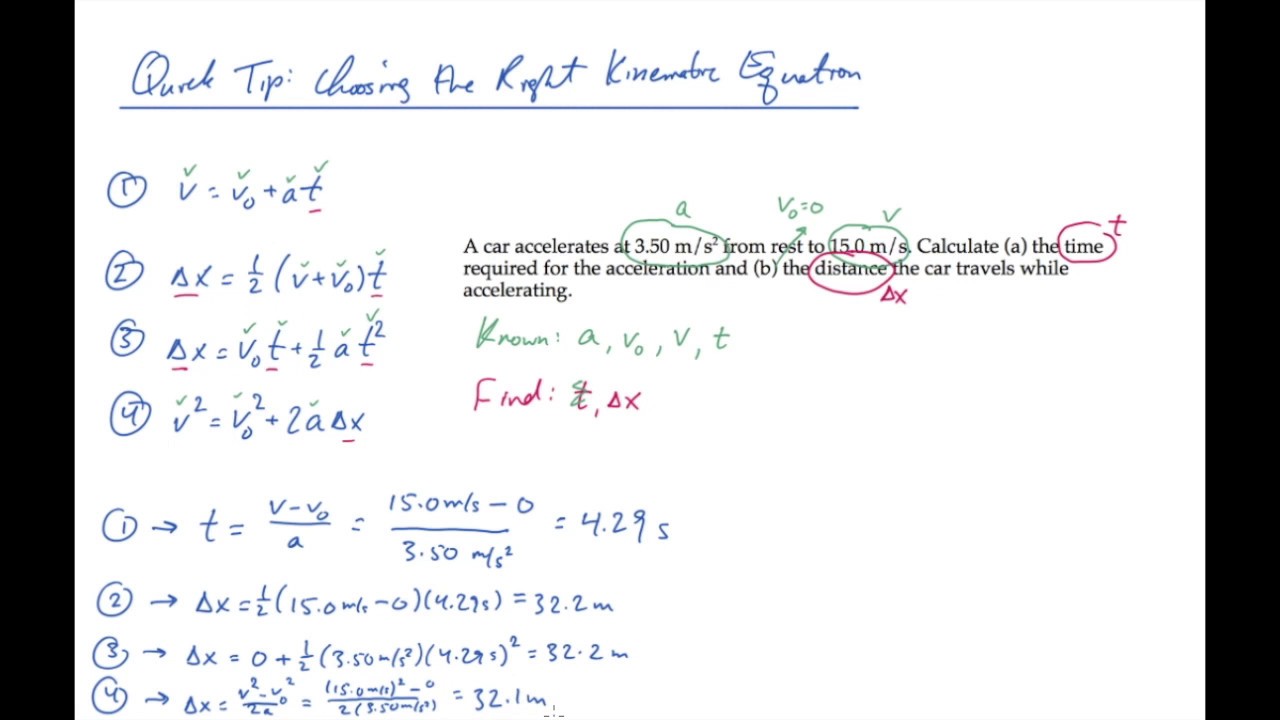 Quick Tip: Choosing the Right Kinematic Equation
① v = v₀ + at
a v₀=0 v
A car accelerates at 3.50 m/s² from rest to 15.0 m/s. Calculate (a) the time t
required for the acceleration and (b) the distance the car travels while
accelerating. Δx
② Δx = 1/2 (v+v₀)t
③ Δx = v₀t + 1/2 at²
Known: a, v₀, v, t
④ v² = v₀² + 2aΔx
Find: t, Δx
① → t = (v-v₀)/a = (15.0 m/s - 0)/(3.50 m/s²) = 4.29 s
② → Δx = 1/2 (15.0 m/s - 0)(4.29 s) = 32.2 m
③ → Δx = 0 + 1/2 (3.50 m/s²)(4.29 s)² = 32.2 m
④ → Δx = (v²-v₀²)/2a = ((15.0 m/s)² - 0)/(2(3.50 m/s²)) = 32.1 m